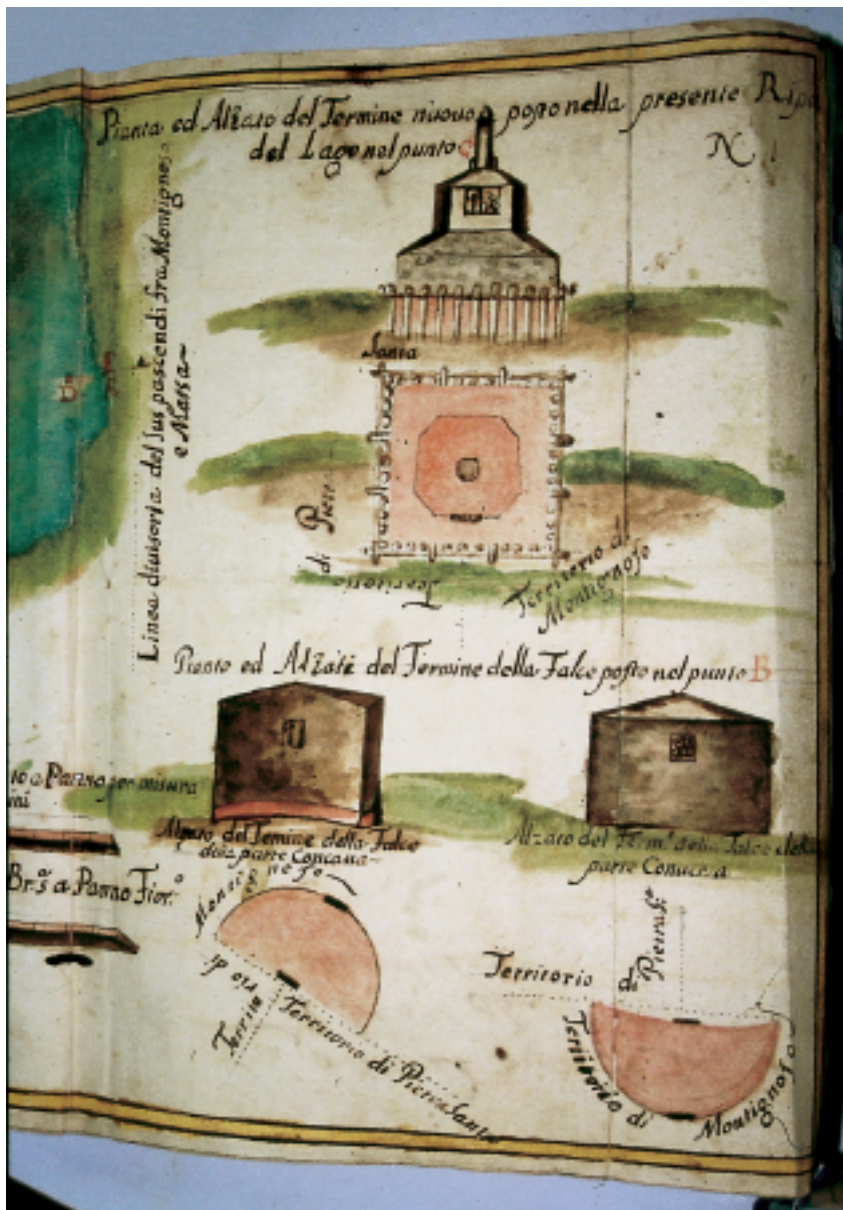 Pianta ed Alzato del Termine nuouo posto nella presente Ripa
del Lago nel punto C
N
Linea diuisoria del Jus pascendi fra Montignoso
e Massa
Santa
Territorio di Pietra
Territorio di
Montignoso
Piante ed Alzati del Termine della Falce posto nel punto B
a Panno per misura
Alzato del Termine della Falce
dalla parte Concaua
Alzato del Term.e della Falce della
parte Conuessa
Br.a a Panno Fior.o
Territorio di Montignoso
Territorio di Pietra Santa
Territorio di Pietra S.ta
Territorio di Montignoso